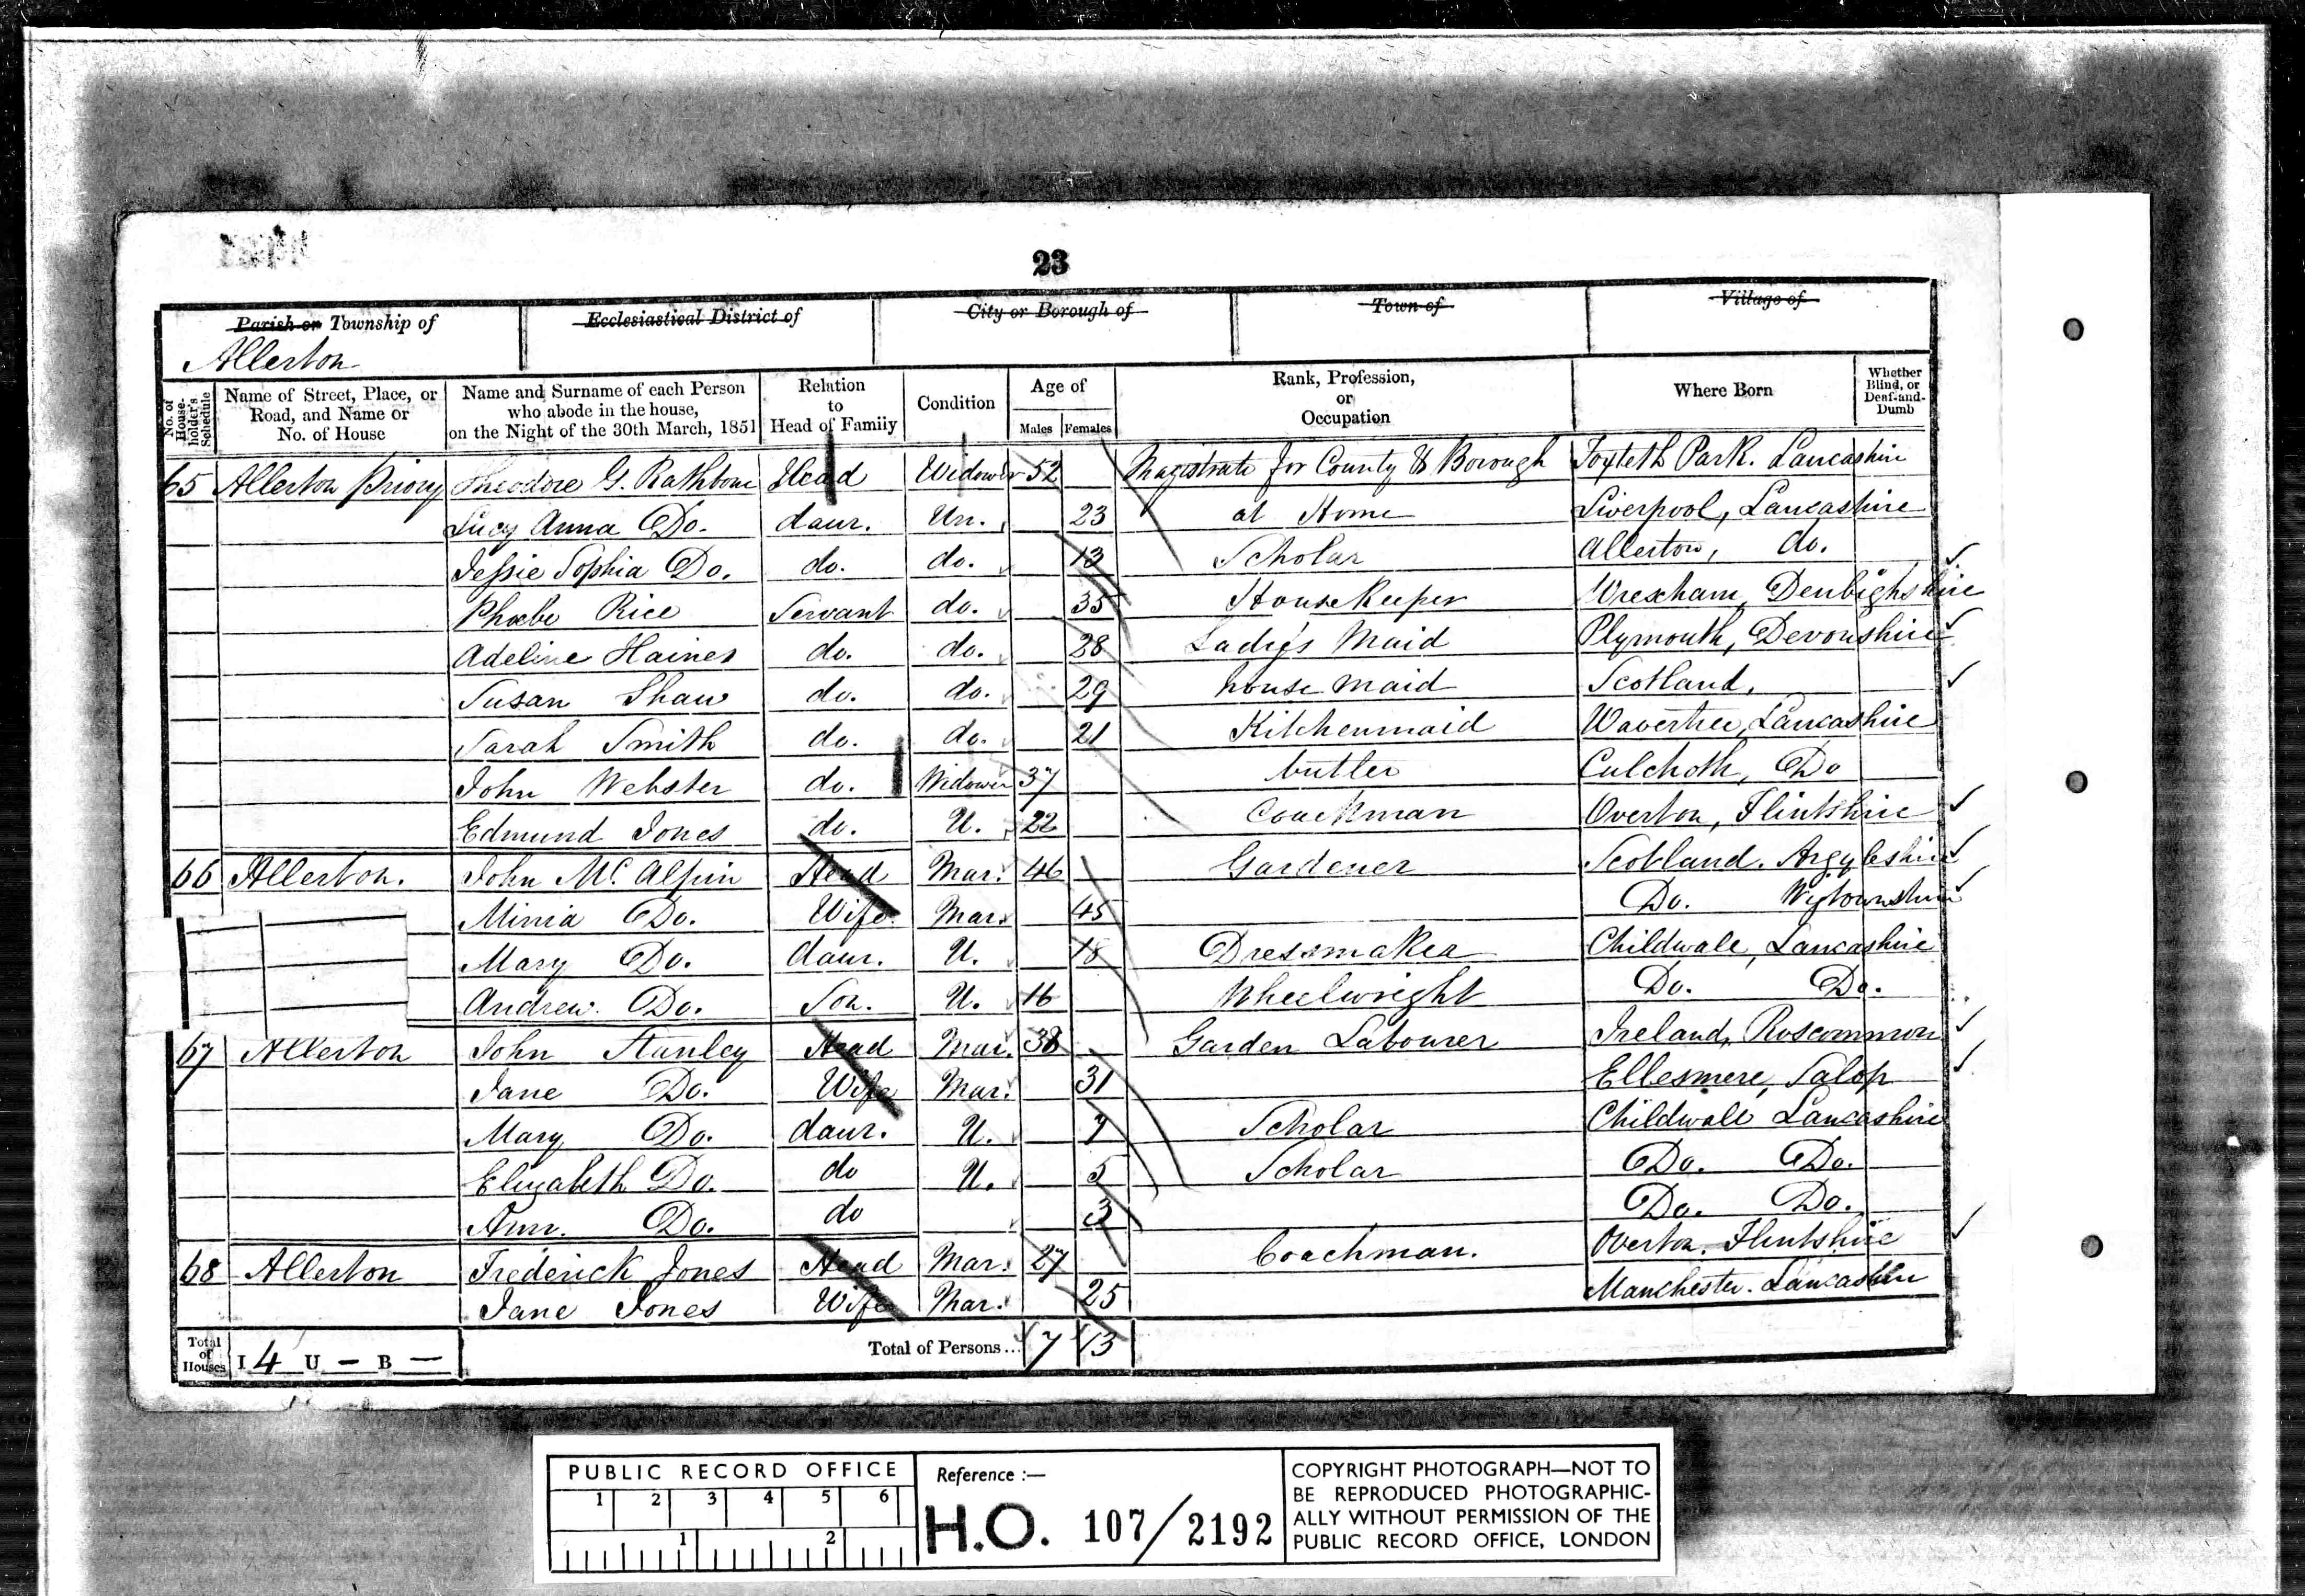 23
Parish or Township of Ecclesiastical District of City or Borough of Town of Village of
Allerton
No. of House-holder's Schedule Name of Street, Place, or Road, and Name or No. of House Name and Surname of each Person who abode in the house, on the Night of the 30th March, 1851 Relation to Head of Family Condition Age of Males Females Rank, Profession, or Occupation Where Born Whether Blind, or Deaf-and-Dumb
65 Allerton Priory Theodore G. Rathbone Head Widower 52 Magistrate for County & Borough Toxteth Park. Lancashire
Lucy Anna Do. daur. Un. 23 at Home Liverpool, Lancashire
Jessie Sophia Do. do. do. 13 Scholar Allerton, do.
Phoebe Rice Servant do. 35 HouseKeeper Wrexham, Denbighshire
Adeline Haines do. do. 28 Lady's Maid Plymouth, Devonshire
Susan Shaw do. do. 29 house maid Scotland,
Sarah Smith do. do. 21 Kitchenmaid Wavertree, Lancashire
John Webster do. Widower 37 butler Culcheth, Do
Edmund Jones do. U. 22 Coachman Overton, Flintshire
66 Allerton. John Mc. Alpin Head Mar. 46 Gardener Scotland. Argyleshire
Minia Do. Wife Mar. 45 Do. Wigtownshire
Mary Do. daur. U. 18 Dressmaker Childwale, Lancashire
Andrew. Do. Son. U. 16 Wheelwright Do. Do.
67 Allerton John Stanley Head Mar. 38 Garden Labourer Ireland, Roscommon
Jane Do. Wife Mar. 31 Ellesmere, Salop
Mary Do. daur. U. 7 Scholar Childwale Lancashire
Elizabeth Do. do U. 5 Scholar Do. Do.
Ann. Do. do 3 Do. Do.
68 Allerton Frederick Jones Head Mar. 27 Coachman. Overton. Flintshire
Jane Jones Wife Mar. 25 Manchester. Lancashire
Total of Houses I 4 U – B – Total of Persons... 7 13
PUBLIC RECORD OFFICE
1 2 3 4 5 6
1 2
Reference :—
H.O. 107/2192
COPYRIGHT PHOTOGRAPH—NOT TO
BE REPRODUCED PHOTOGRAPHIC-
ALLY WITHOUT PERMISSION OF THE
PUBLIC RECORD OFFICE, LONDON